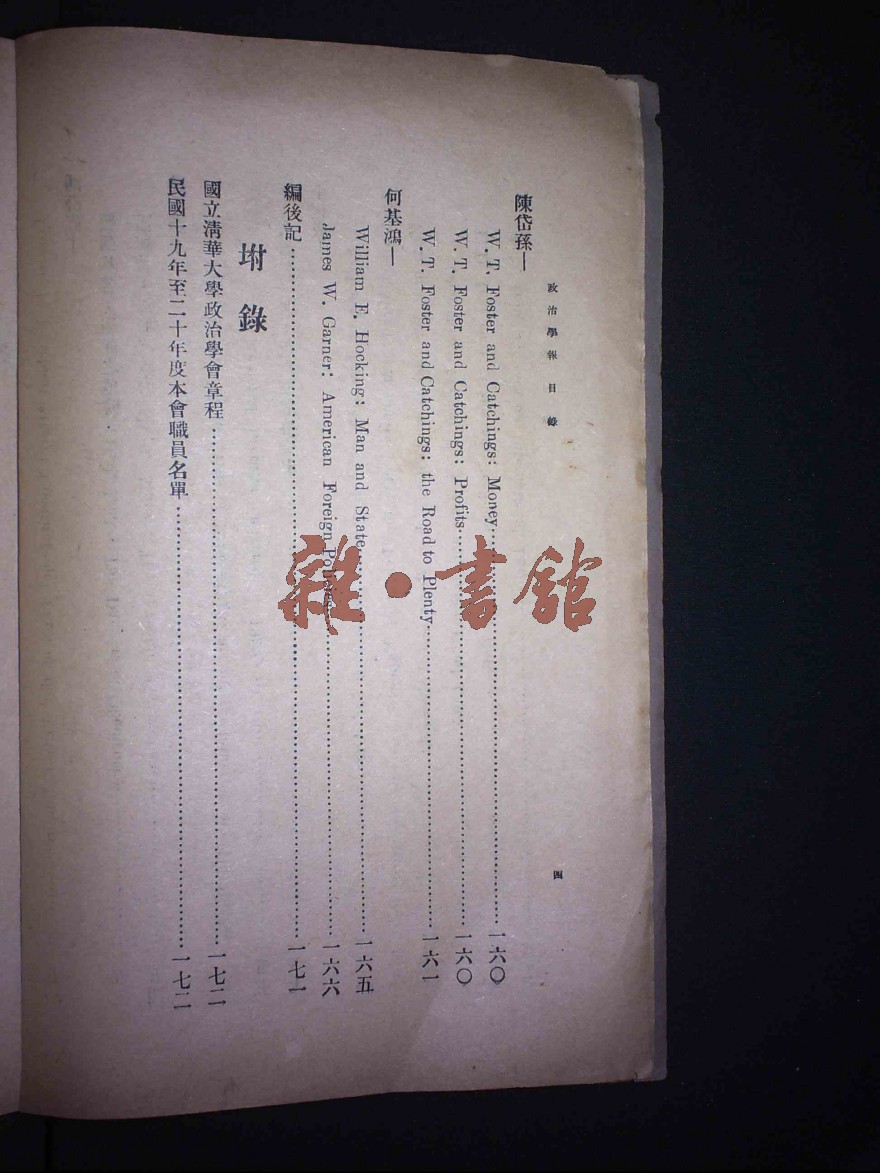 政治學報目錄
四
陳岱孫—
W. T. Foster and Catchings: Money……一六〇
W. T. Foster and Catchings: Profits……一六〇
W. T. Foster and Catchings: the Road to Plenty……一六一
何基鴻—
William E. Hocking: Man and State……一六五
James W. Garner: American Foreign Policies……一六六
編後記……一七一
坿錄
國立清華大學政治學會章程……一七二
民國十九年至二十年度本會職員名單……一七二
雜·書館